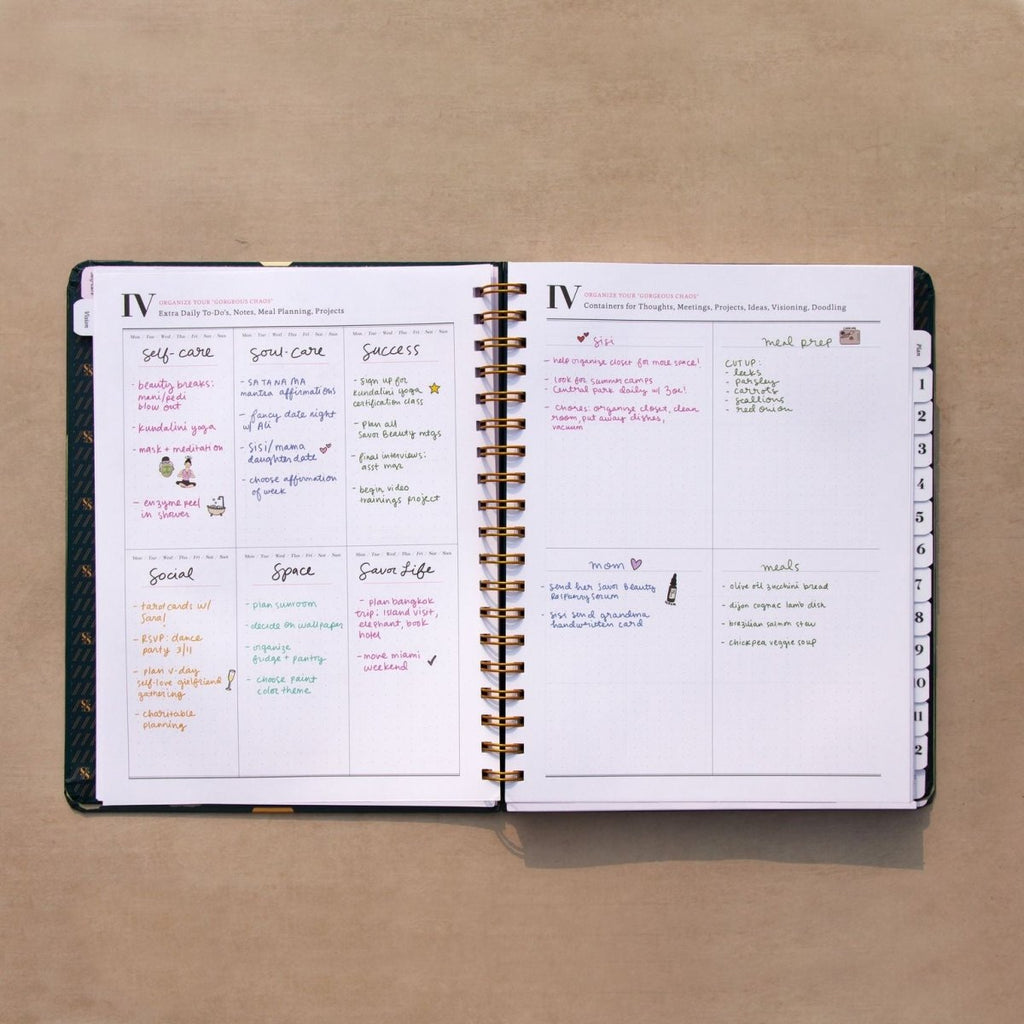 IV
ORGANIZE YOUR "GORGEOUS CHAOS"
Extra Daily To-Do's, Notes, Meal Planning, Projects
Mon Tue Wed Thu Fri Sat Sun
self-care
- beauty breaks:
mani/pedi
blow out
- kundalini yoga
- mask + meditation
- enzyme peel
in shower
Mon Tue Wed Thu Fri Sat Sun
Soul-care
- SA TA NA MA
mantra affirmations
- fancy date night
w/ Ali
- Sisi/mama
daughter date
- choose affirmation
of week
Mon Tue Wed Thu Fri Sat Sun
Success
- Sign up for
kundalini yoga
certification class
- plan all
Savor Beauty mtgs
- final interviews:
asst mgr
- begin video
trainings project
Mon Tue Wed Thu Fri Sat Sun
Social
- tarot cards w/
Sara!
- RSVP: dance
party 3/11
- plan v-day
self-love girlfriend
gathering
- charitable
planning
Mon Tue Wed Thu Fri Sat Sun
Space
- plan sunroom
- decide on wallpaper
- organize
fridge + pantry
- choose paint
color theme
Mon Tue Wed Thu Fri Sat Sun
Savor Life
- plan bangkok
trip: island visit,
elephant, book
hotel
- move miami
weekend
IV
ORGANIZE YOUR "GORGEOUS CHAOS"
Containers for Thoughts, Meetings, Projects, Ideas, Visioning, Doodling
Sisi
- help organize closet for more space!
- look for summer camps
- Central park daily w/ Zoe!
- Chores: organize closet, clean
room, put away dishes,
vacuum
meal prep
CUT UP:
- leeks
- parsley
- carrots
- scallions
- red onion
mom
- Send her Savor Beauty
Raspberry serum
- Sisi send grandma
handwritten card
meals
- olive oil zucchini bread
- dijon cognac lamb dish
- brazilian salmon stew
- chickpea veggie soup
Vision
Plan
1
2
3
4
5
6
7
8
9
10
11
2